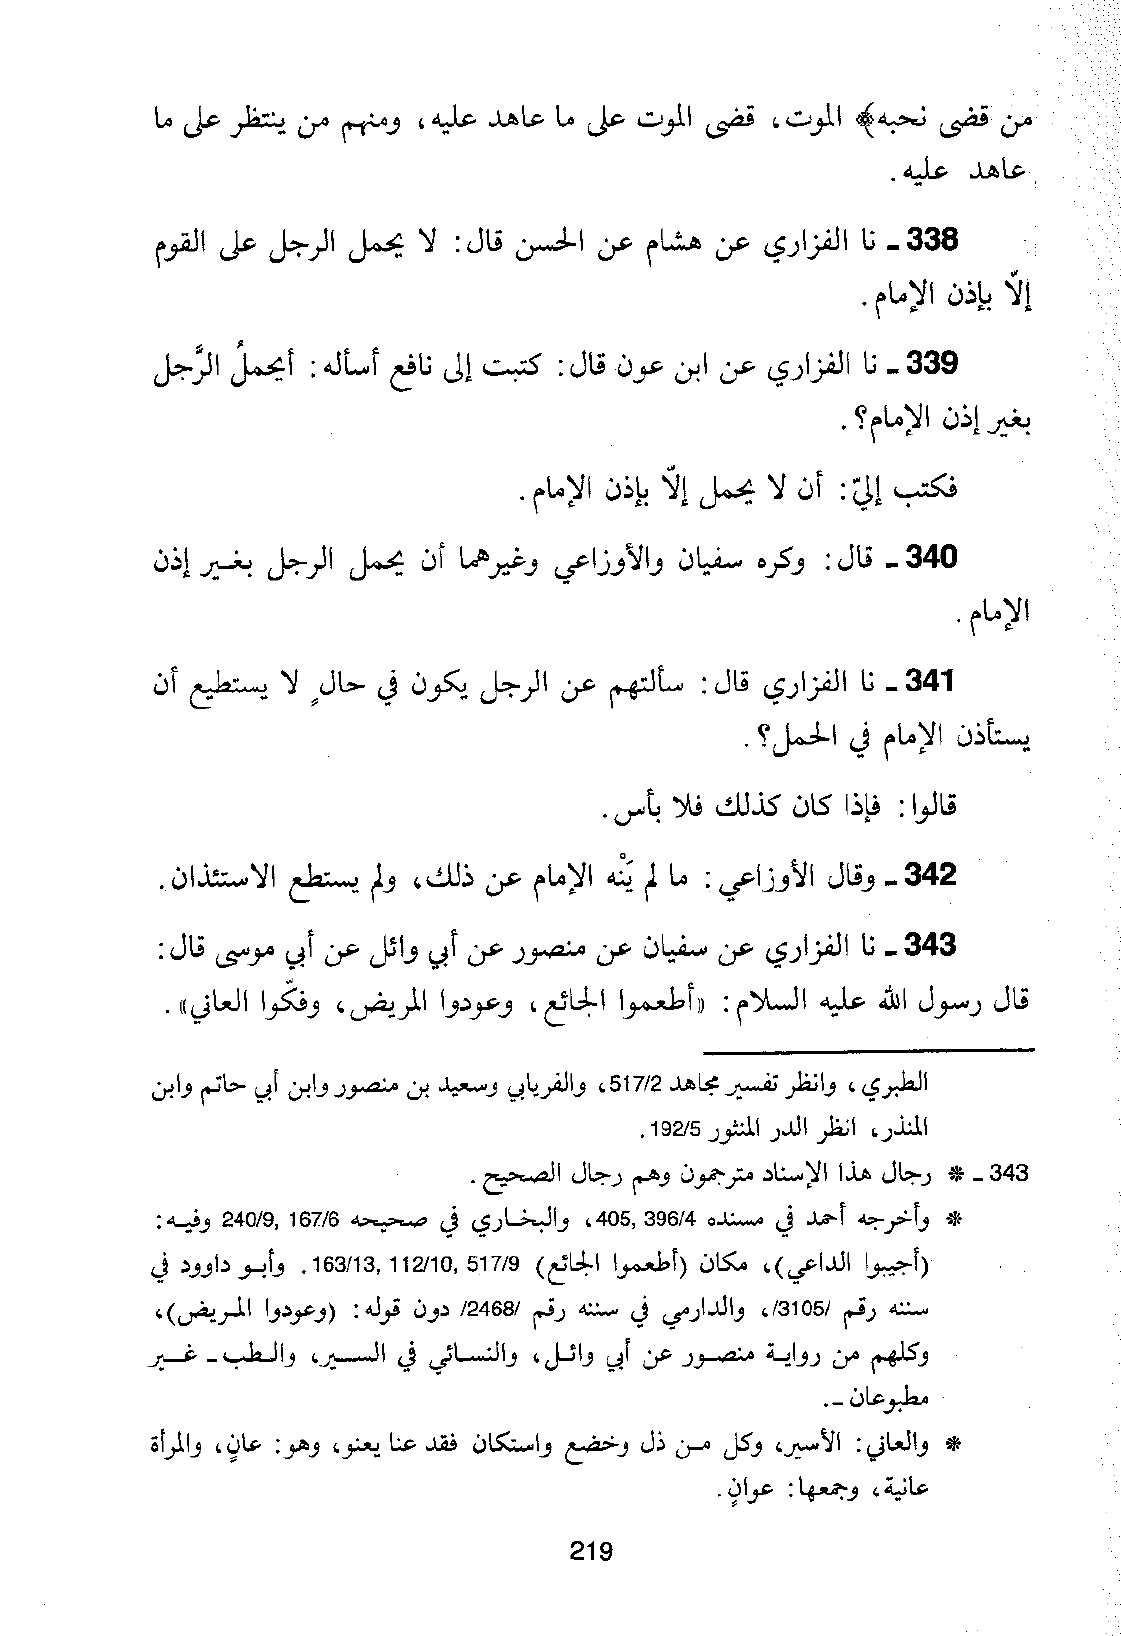 من قضى نحبه﴾ الموت، قضى الموت على ما عاهد عليه، ومنهم من ينتظر على ما
عاهد عليه.
338 ـ نا الفزاري عن هشام عن الحسن قال: لا يحمل الرجل على القوم
إلاّ بإذن الإمام.
339 ـ نا الفزاري عن ابن عون قال: كتبت إلى نافع أسأله: أيحملُ الرَّجل
بغير إذن الإمام؟.
فكتب إليّ: أن لا يحمل إلاّ بإذن الإمام.
340 ـ قال: وكره سفيان والأوزاعي وغيرهما أن يحمل الرجل بغير إذن
الإمام.
341 ـ نا الفزاري قال: سألتهم عن الرجل يكون في حالٍ لا يستطيع أن
يستأذن الإمام في الحمل؟.
قالوا: فإذا كان كذلك فلا بأس.
342 ـ وقال الأوزاعي: ما لم يَنْه الإمام عن ذلك، ولم يستطع الاستئذان.
343 ـ نا الفزاري عن سفيان عن منصور عن أبي وائل عن أبي موسى قال:
قال رسول الله عليه السلام: «أطعموا الجائع، وعودوا المريض، وفكّوا العاني».
الطبري، وانظر تفسير مجاهد 517/2، والفريابي وسعيد بن منصور وابن أبي حاتم وابن
المنذر، انظر الدر المنثور 192/5.
343 ـ * رجال هذا الإسناد مترجمون وهم رجال الصحيح.
* وأخرجه أحمد في مسنده 396/4 ,405، والبخاري في صحيحه 167/6 ,240/9 وفيه:
(أجيبوا الداعي)، مكان (أطعموا الجائع) 517/9 ,112/10 ,163/13. وأبو داوود في
سننه رقم /3105/، والدارمي في سننه رقم /2468/ دون قوله: (وعودوا المريض)،
وكلهم من رواية منصور عن أبي وائل، والنسائي في السير، والطب ـ غير
مطبوعان ـ.
* والعاني: الأسير، وكل من ذل وخضع واستكان فقد عنا يعنو، وهو: عانٍ، والمرأة
عانية، وجمعها: عوانٍ.
219